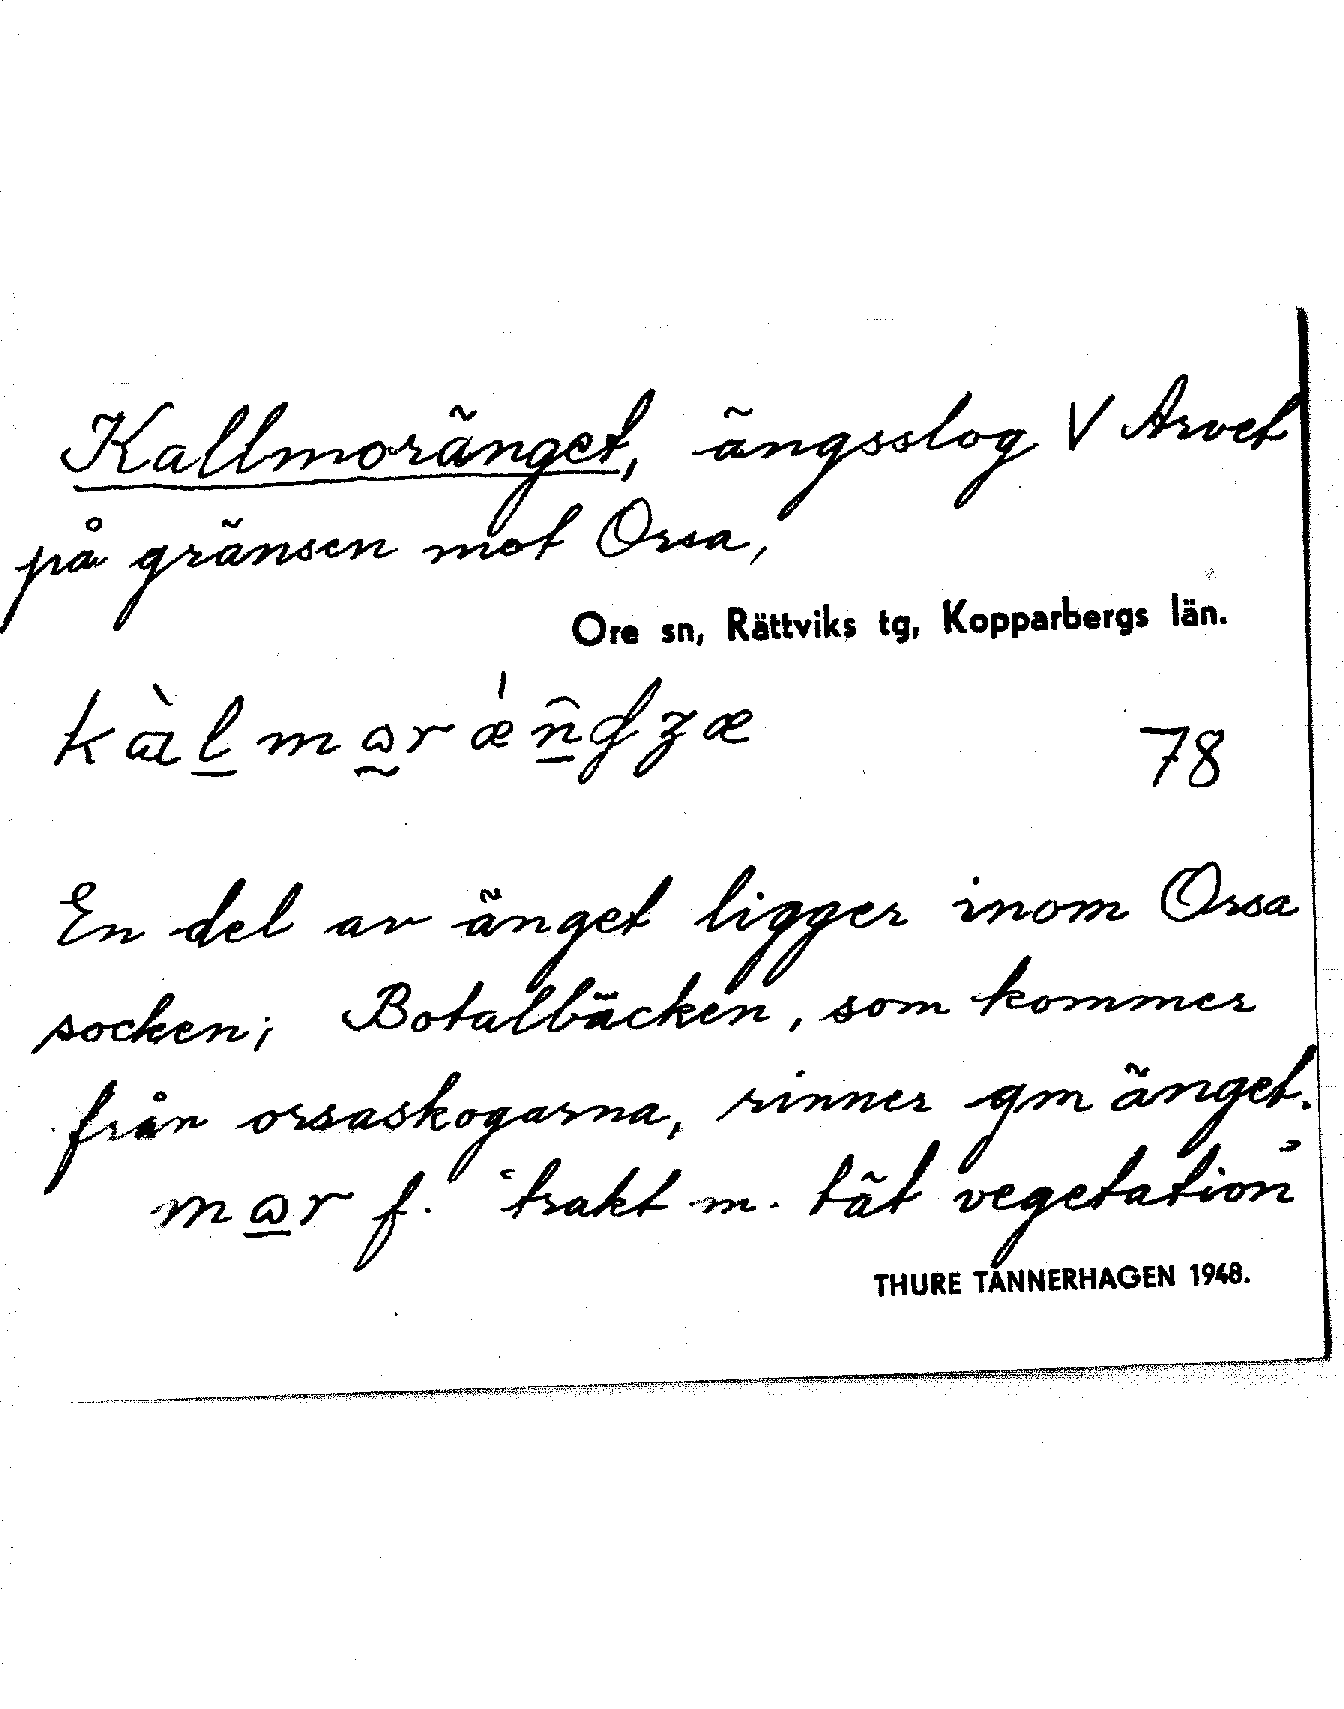 Kallmoränget, ängsslog V Arvet
på gränsen mot Orsa,
Ore sn, Rättviks tg, Kopparbergs län.
78
En del av änget ligger inom Orsa
socken; Botalbäcken, som kommer
från orsaskogarna, rinner gm änget.
f. "trakt m. tät vegetation"
THURE TÄNNERHAGEN 1948.